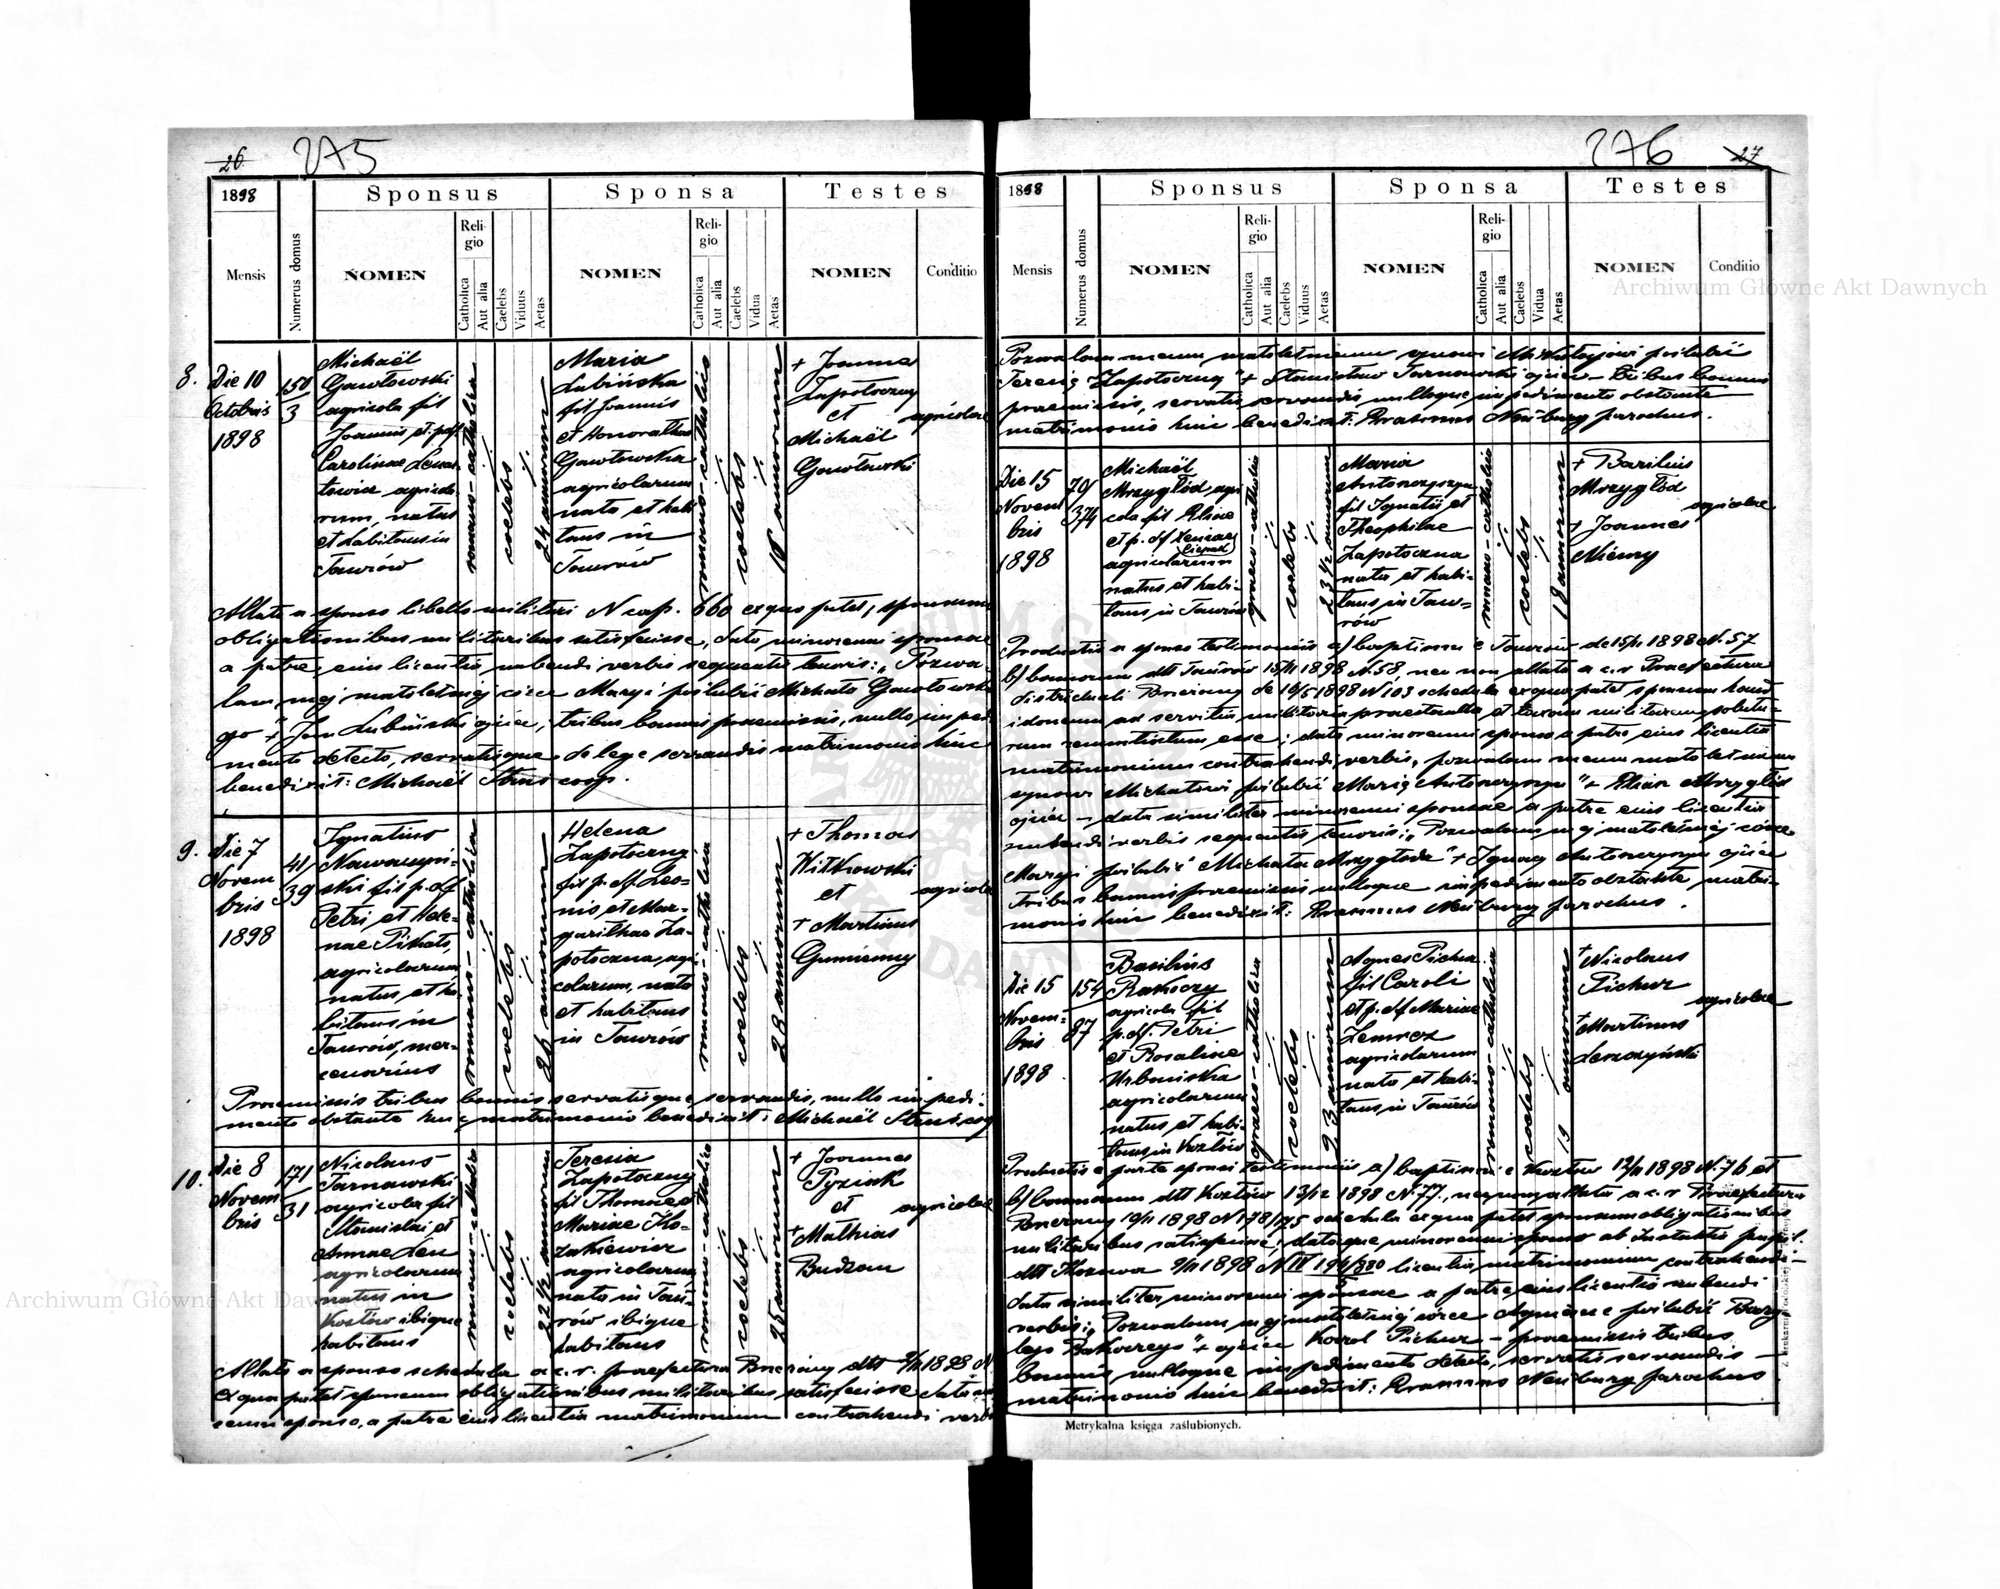 26
275
1898
Sponsus
Sponsa
Testes
Mensis
Numerus domus
NOMEN
Religio
Catholica
Aut alia
Caelebs
Viduus
Aetas
NOMEN
Religio
Catholica
Aut alia
Caelebs
Vidua
Aetas
NOMEN
Conditio
8.
Die 10
Octobris
1898
150
3
Michaël
Gawłowski
agricola fil
Joannis et p. def.
Carolinae Lewan
towicz agricola-
rum, natus
et habitans in
Taurów
romano-catholica
coelebs
24 annorum
Maria
Lubińska
fil Joannis
et Honorathae
Gawłowska
agricolarum
nata et habi
tans in
Taurów
romano-catholica
coelebs
annorum
+ Joannes
Zapotoczny
et
Michaël
Gawłowski
agricolae
Allato a sponso libello militari N exp. 660 ex quo patet, sponsum
obligationibus militaribus satisfecisse, data minorenni sponsae
a patre eius licentia nubendi verbis sequentis tenoris: „Pozwa-
lam mej małoletniej córce Maryi poślubić Michała Gawłowskie
go" + Jan Lubiński ojciec, tribus bannis praemissis, nullo impedi
mento detecto, servatisque de lege servandis matrimonio huic
benedixit: Michaël Struś coop.
9.
Die 7
Novem
bris
1898
41
39
Ignatius
Nawaryń-
ski fil p. def
Petri et Hele-
nae Pikato,
agricolarum
natus et ha-
bitans in
Taurów, mer-
cenarius
romano-catholica
coelebs
26 annorum
Helena
Zapotoczny
fil p. def. Leo-
nis et Mar-
garithae Za-
potoczna, agri
colarum, nata
et habitans
in Taurów
romano-catholica
coelebs
28 annorum
+ Thomas
Witkowski
et
+ Martinus
Gumienny
agricolae
Praemissis tribus bannis servatisque servandis, nullo impedi-
mento obstante huic matrimonio benedixit: Michaël Struś, coop
10.
Die 8
Novem
bris
171
31
Nicolaus
Tarnawski
agricola fil
Stanislai et
Annae Len
agricolarum
natus in
Kozłów ibique
habitans
romano-catholica
coelebs
22 ½ annorum
Teresia
Zapotoczny
fil Thomae et
Mariae Ko-
zakiewicz
agricolarum
nata in Tau-
rów ibique
habitans
romano-catholica
coelebs
25 annorum
+ Joannes
Pyziak
et
+ Mathias
Budzan
agricolae
Allata a sponso schedula a c. r. praefectura Brzeżany dtto 1898 N
ex qua patet sponsum obligationibus militaribus satisfecisse data mi
renni sponso, a patre eius licentia matrimonium contrahendi verbis
276
27
1898
Sponsus
Sponsa
Testes
Mensis
Numerus domus
NOMEN
Religio
Catholica
Aut alia
Caelebs
Viduus
Aetas
NOMEN
Religio
Catholica
Aut alia
Caelebs
Vidua
Aetas
NOMEN
Conditio
Pozwalam memu małoletniemu synowi Mikołajowi poślubić
Teresię Zapotoczną" + Stanisław Tarnawski ojciec – tribus bannis
praemissis, servatis servandis nulloque impedimento obstante
matrimonio huic benedixit: Erasmus Neuburg parochus.
Die 15
Novem
bris
1898
70
374
Michaël
Mrzygłód agri
cola fil Eliae
et p. def Xeniae
agricolarum
natus et habi-
tans in Taurów
graeco-catholica
coelebs
23 ½ annorum
Maria
Antonczyszyn
fil Ignatii et
Theophilae
Zapotoczna
nata et habi-
tans in Tau-
rów
romano-catholica
coelebs
18 annorum
+ Basilius
Mrzygłód
+ Joannes
agricolae
Productis a sponso testimoniis a) baptismi e Taurów de 15/11 1898 N. 57
b) bannorum dtt Taurów 15/11 1898 N. 58, nec non allata a c. r Praefectura
districtuali Brzeżany de 10/5 1898 N 103 schedula ex qua patet sponsum haud
idoneum ad servitia militaria praestanda et taxam militarem solutu-
rum renuntiatum esse; data minorenni sponso a patre eius licentia
matrimonium contrahendi verbis „pozwalam memu małoletniemu
synowi Michałowi poślubić Maryę Antonczyszyn" + Elias Mrzygłód
ojciec – data similiter minorenni sponsae a patre eius licentia
nubendi verbis sequentis tenoris: „Pozwalam mej małoletniej córce
Maryi poślubić Michała Mrzygłoda" + Ignacy Antonczyszyn ojciec
Tribus bannis praemissis nulloque impedimento obstante, matri-
monio huic benedixit: Erasmus Neuburg parochus.
Die 15
Novem-
bris
1898
154
87
Basilius
Rakoczy
agricola fil
p. def. Petri
et Rosaliae
Urbańska
agricolarum
natus et habi-
tans in Kozłów
graeco-catholica
coelebs
23 annorum
Agnes Pichur
fil Caroli
et p. def Mariae
agricolarum
nata et habi-
tans in Taurów
romano-catholica
coelebs
19 annorum
+ Nicolaus
Pichur
+ Martinus
Leszczyński
agricolae
Productis e parte sponsi testimoniis a) baptismi e Kozłów 12/11 1898 N. 76 et
b) bannorum dtt Kozłów 1898 N. 77, nec non allata a c. r Praefectura
Brzeżany 1898 N 178/175 schedula ex qua patet sponsum obligationibus
militaribus satisfecisse, dataque minorenni sponso ab Instantia pupil.
dtt Kozowa 9/11 1898 N IV licentia matrimonium contrahendi –
data similiter minorenni sponsae a patre eius licentia nubendi
verbis „Pozwalam mej małoletniej córce Agniesce poślubić Bazy-
lego Rakoczego" + ojciec Karol Pichur – praemissis tribus
bannis nulloque impedimento detecto, servatis servandis –
matrimonio huic benedixit: Erasmus Neuburg parochus
Metrykalna księga zaślubionych.
Archiwum Główne Akt Dawnych
Archiwum Główne Akt Dawnych